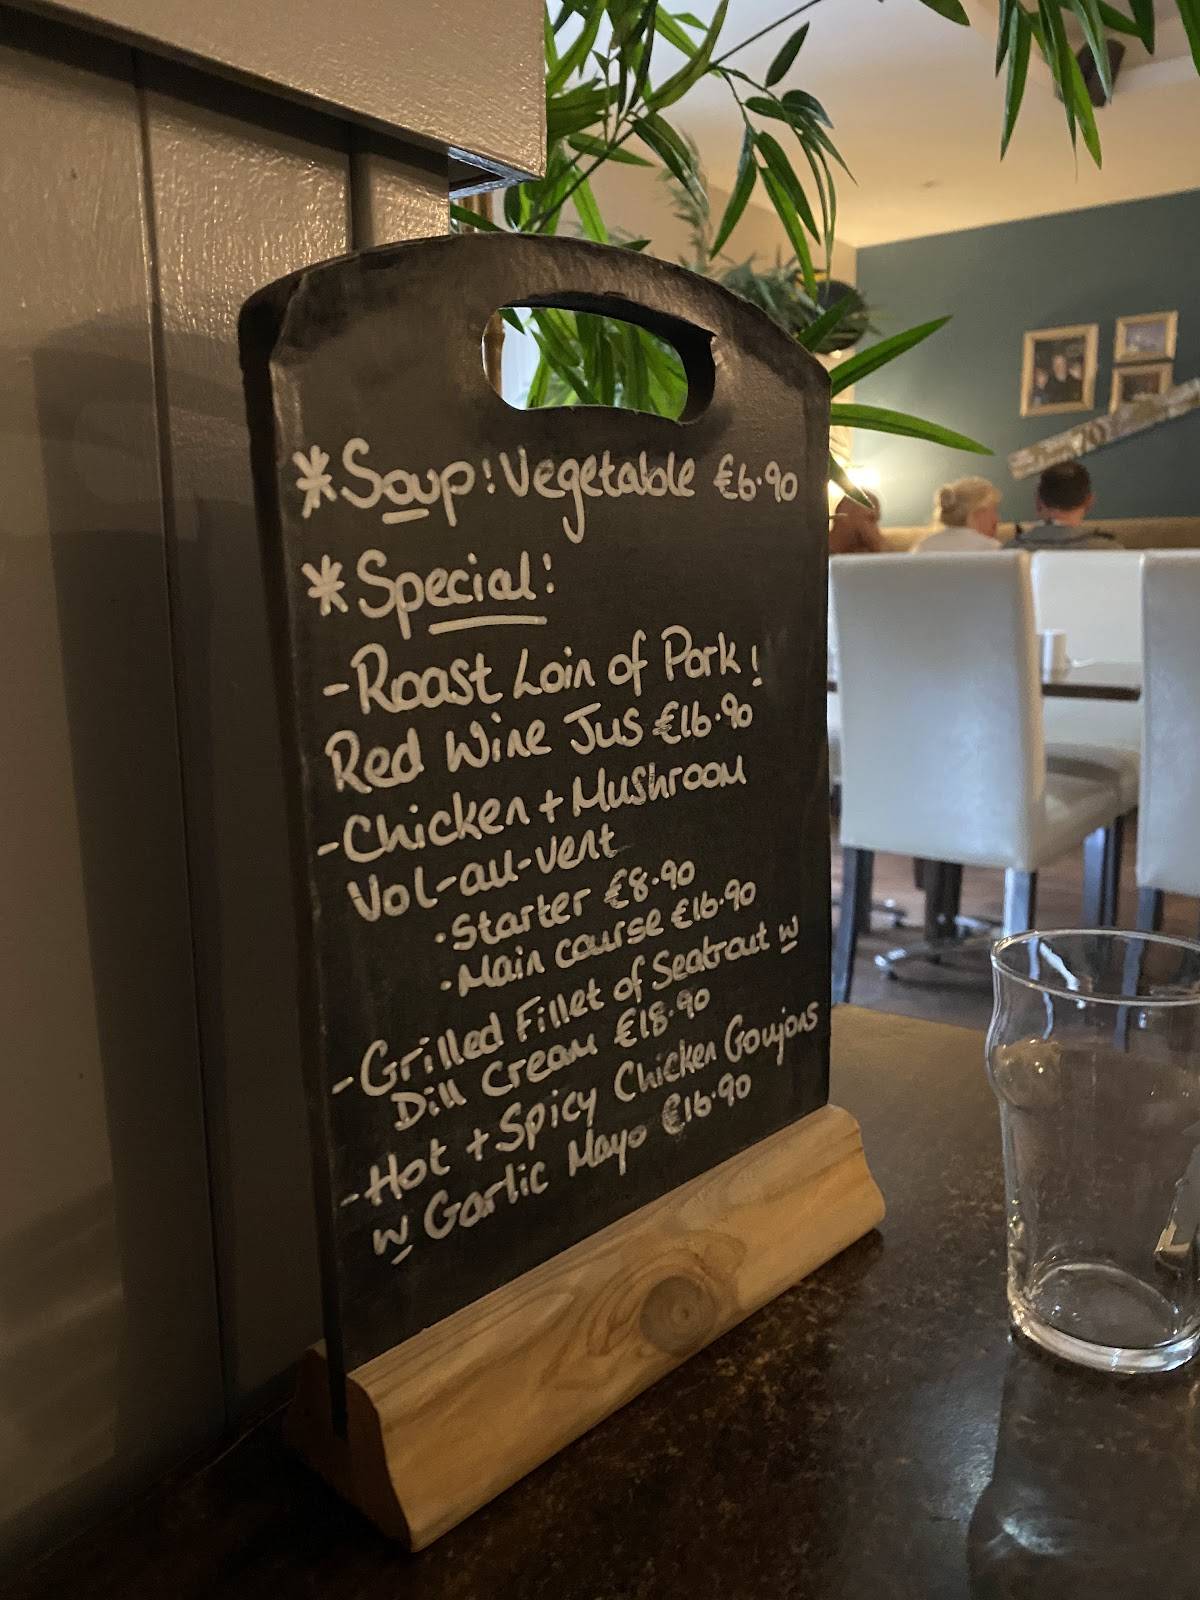 *Soup: Vegetable €6.90
*Special:
-Roast Loin of Pork!
Red Wine Jus €16.90
-Chicken + Mushroom
Vol-au-vent
·Starter €8.90
·Main course €16.90
-Grilled Fillet of Seatrout w
Dill Cream €18.90
-Hot + Spicy Chicken Goujons
w Garlic Mayo €16.90